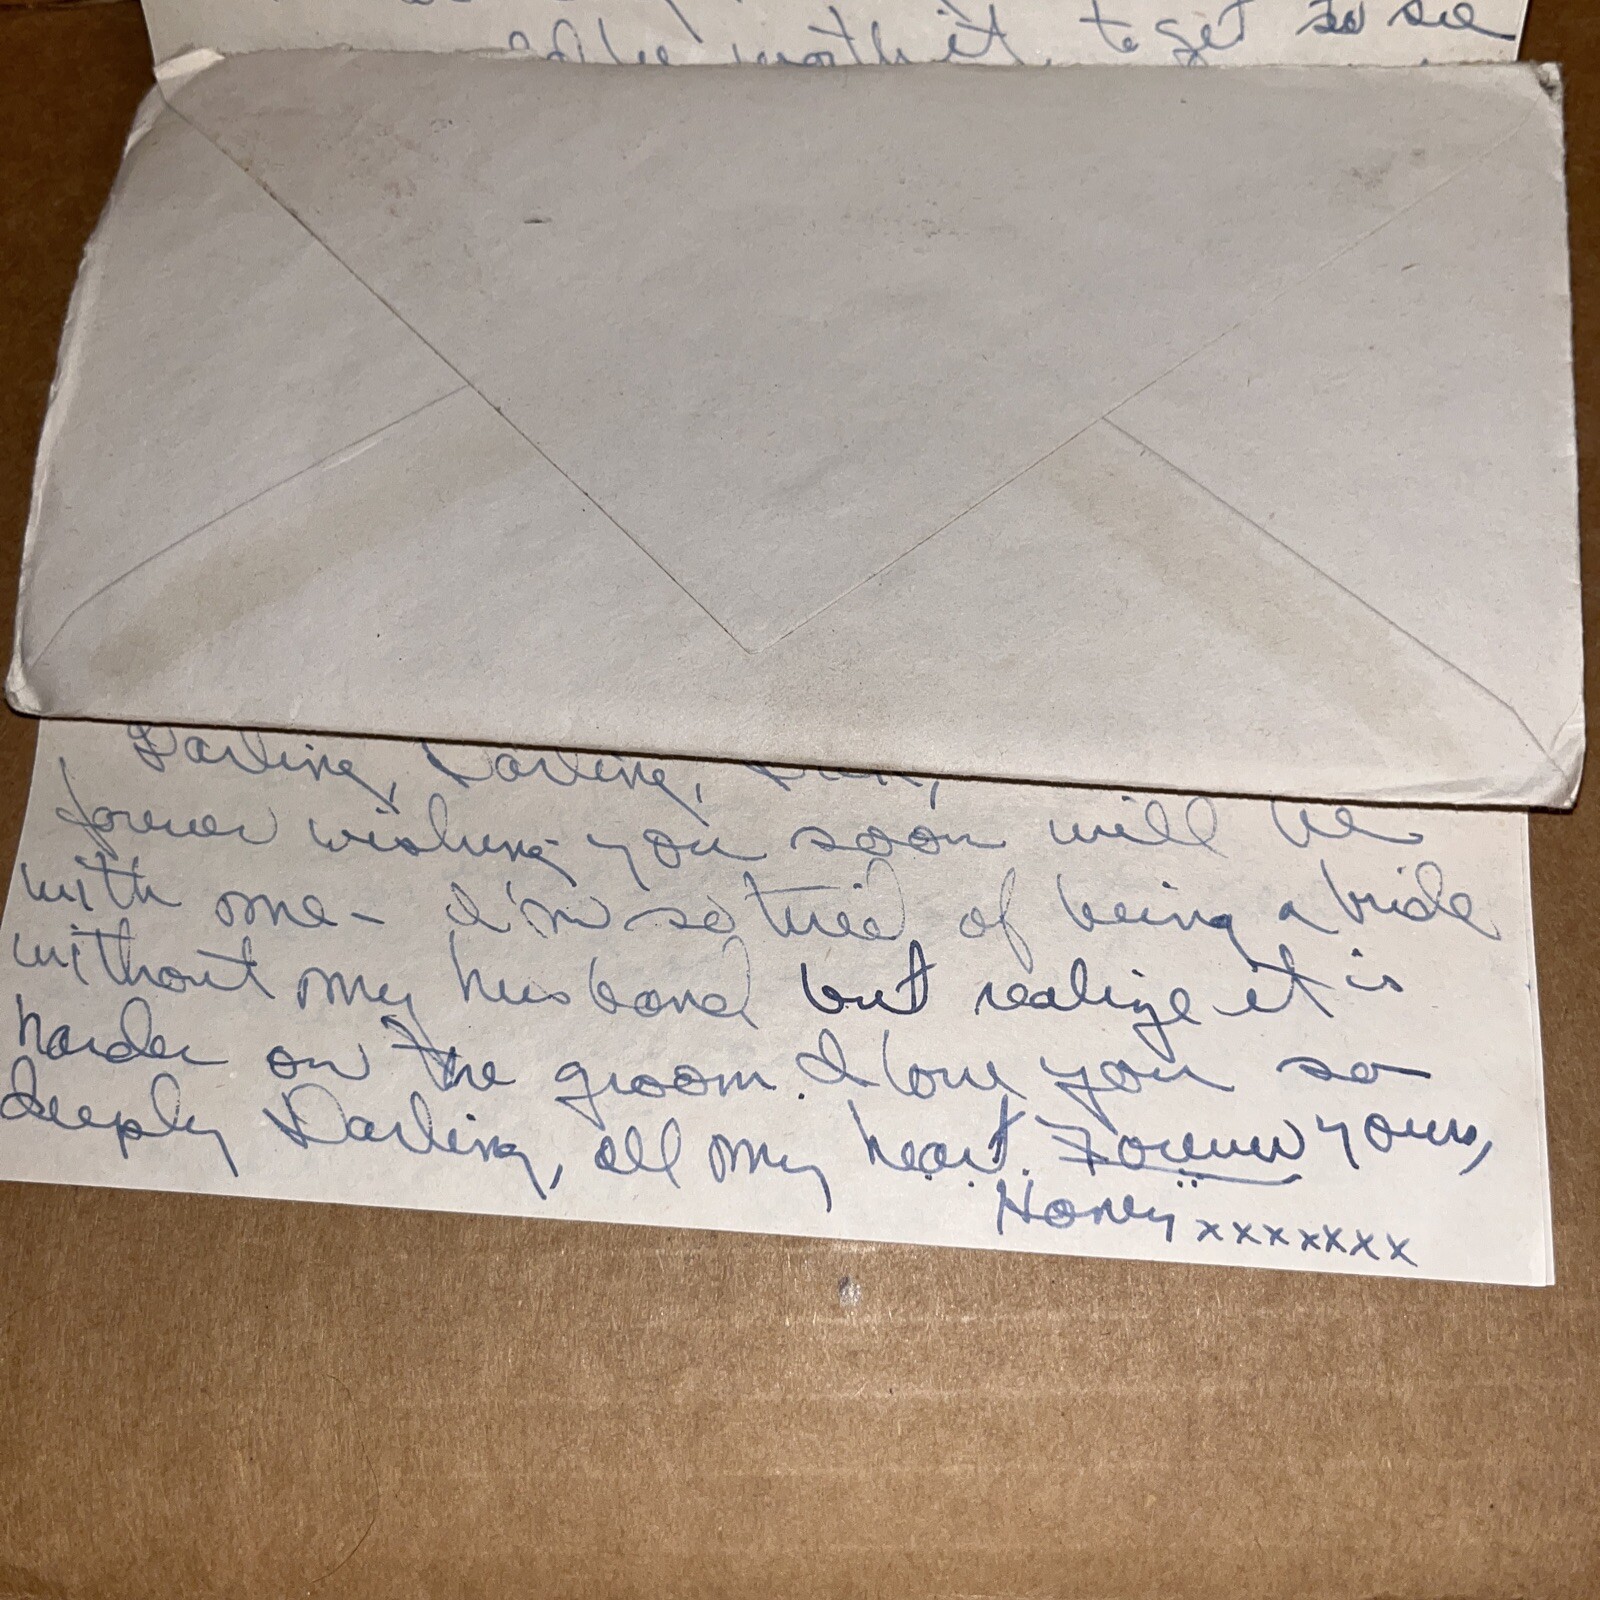 to get to see
worth it
Darling, Darling,
forever wishing you soon will be
with me - I'm so tired of being a bride
without my husband but realize it is
harder on the groom. I love you so
deeply Darling, all my heart. Forever yours,
Honey xxxxxxx